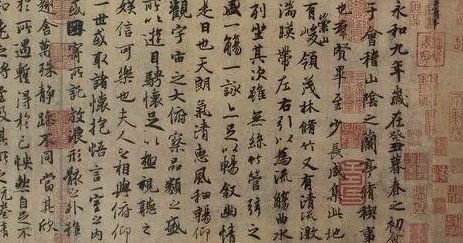 永和九年歲在癸丑暮春之初
于會稽山陰之蘭亭脩稧事
也群賢畢至少長咸集此地
有崇山峻領茂林脩竹又有清流激
湍暎帶左右引以為流觴曲水
列坐其次雖無絲竹管弦之
盛一觴一詠亦足以暢敘幽情
是日也天朗氣清惠風和暢仰
觀宇宙之大俯察品類之盛
所以遊目騁懷足以極視聽之
娛信可樂也夫人之相與俯仰
一世或取諸懷抱悟言一室之內
或因寄所託放浪形骸之外雖
趣舍萬殊靜躁不同當其欣
於所遇暫得於己怏然自足不
老之將至及其所之既惓情